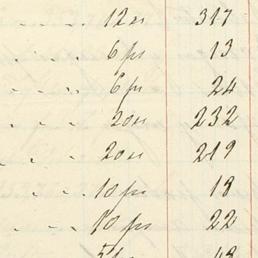 12 os 317
6 ps 13
6 ps 24
20 os 232
20 os 219
10 ps 18
10 ps 22
48